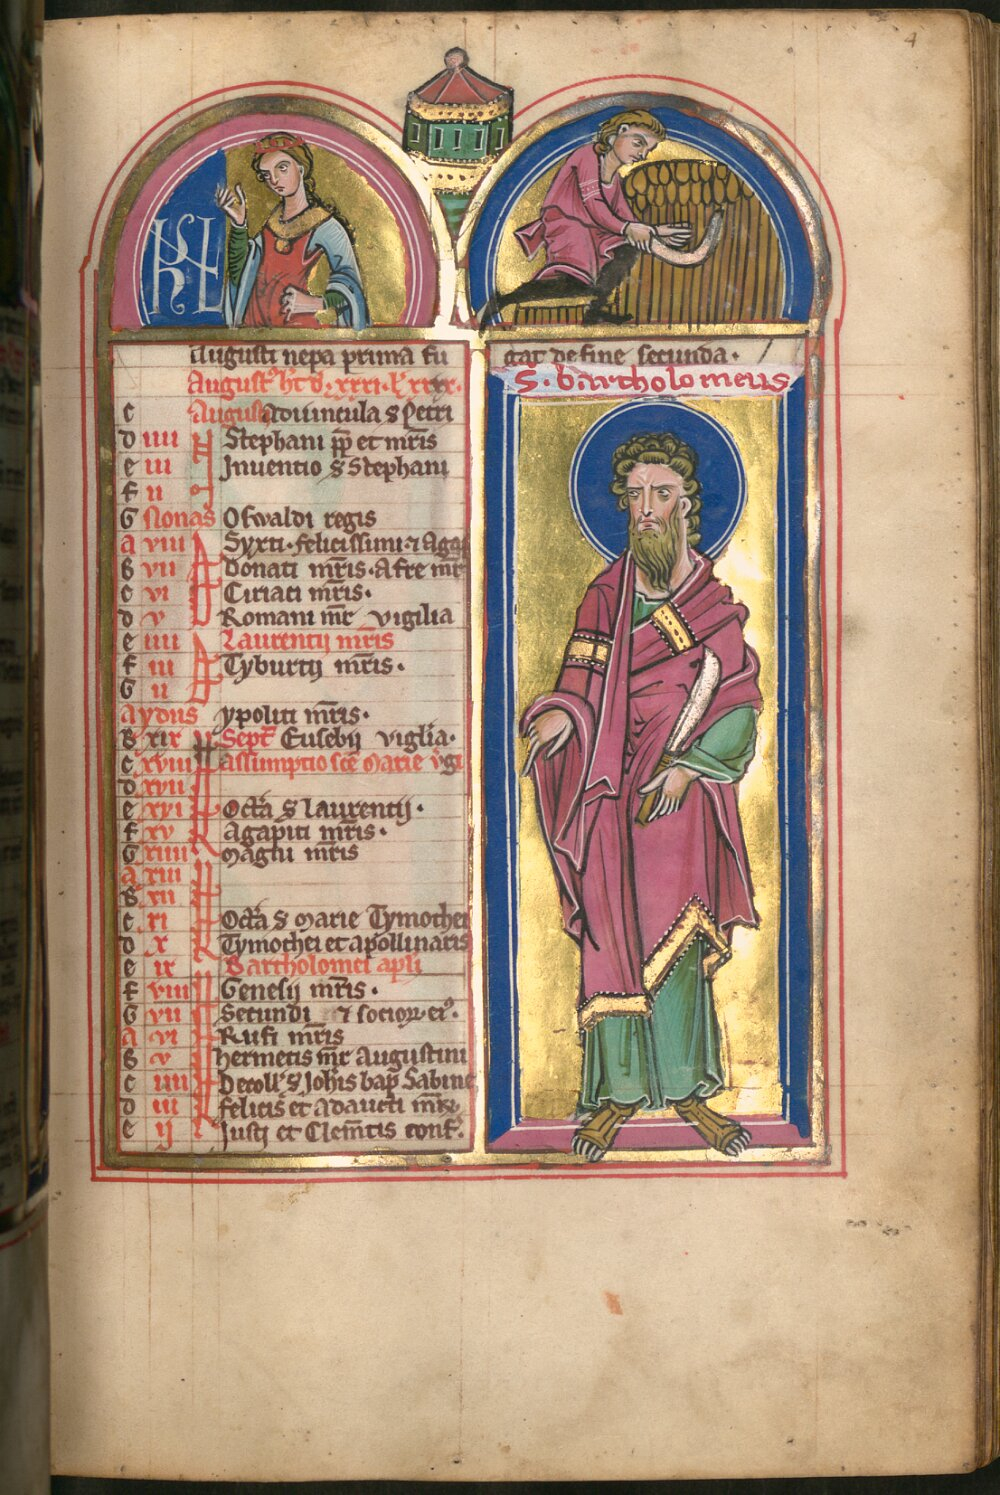 4
KL
Augusti nepa prima fu gat de fine secunda.
August' ht d. xxxi. l' xxx.
c August Aduincula s Petri
d iiii Stephani pp et mris
e iii Inuentio s Stephani
f ii
G Nonas Oswaldi regis
A viii Syxti. felicissimi 7 Agap
b vii Donati mris. Afre mr
c vi Ciriaci mris.
d v Romani mr vigilia
e iiii Laurentij mris
f iii Tyburtij mris.
G ii
A ydus ypoliti mris.
B xix Sept Eusebij viglia.
c xviii Assumptio sce Marie v'gi
d xvii
e xvi Octa s laurentij.
f xv Agapiti mris.
G xiiii Magni mris
A xiii
B xii
c xi Octa s Marie Tymothei
d x Tymothei et apollinaris
e ix Bartholomei apli
f viii Genesij mris.
G vii Secundi 7 socior ei'.
A vi Rufi mris
B v hermetis mr Augustini
c iiii Decoll' s Johis bap Sabine
d iii felicis et Adaucti mr
e ij Justi et Clemtis conf.
S. bartholomeus